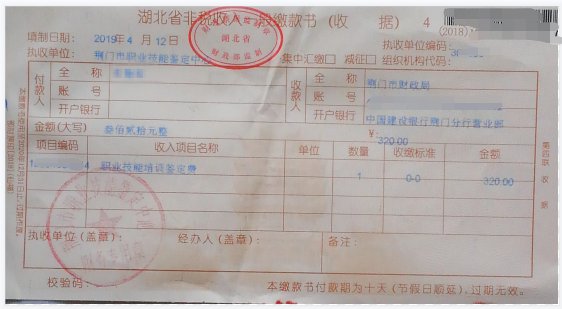 湖北省非税收入一般缴款书（收 据） 4
(2018)
填制日期：2019年 4月 12日
执收单位编码：
执收单位名称：荆门市职业技能鉴定中心
集中汇缴□ 减征□ 组织机构代码：
付款人
全 称
账 号
开户银行
收款人
全 称 荆门市财政局
账 号
开户银行 中国建设银行荆门分行营业部
金额(大写) 叁佰贰拾元整
¥：320.00
项目编码 收入项目名称 单位 数量 收缴标准 金额
4 职业技能培训鉴定费 1 0-0 320.00
执收单位(盖章)： 经办人(盖章)： 备注：
校验码：
本缴款书付款期为十天(节假日顺延)，过期无效。
第四联 收据
湖北省
财政部监制